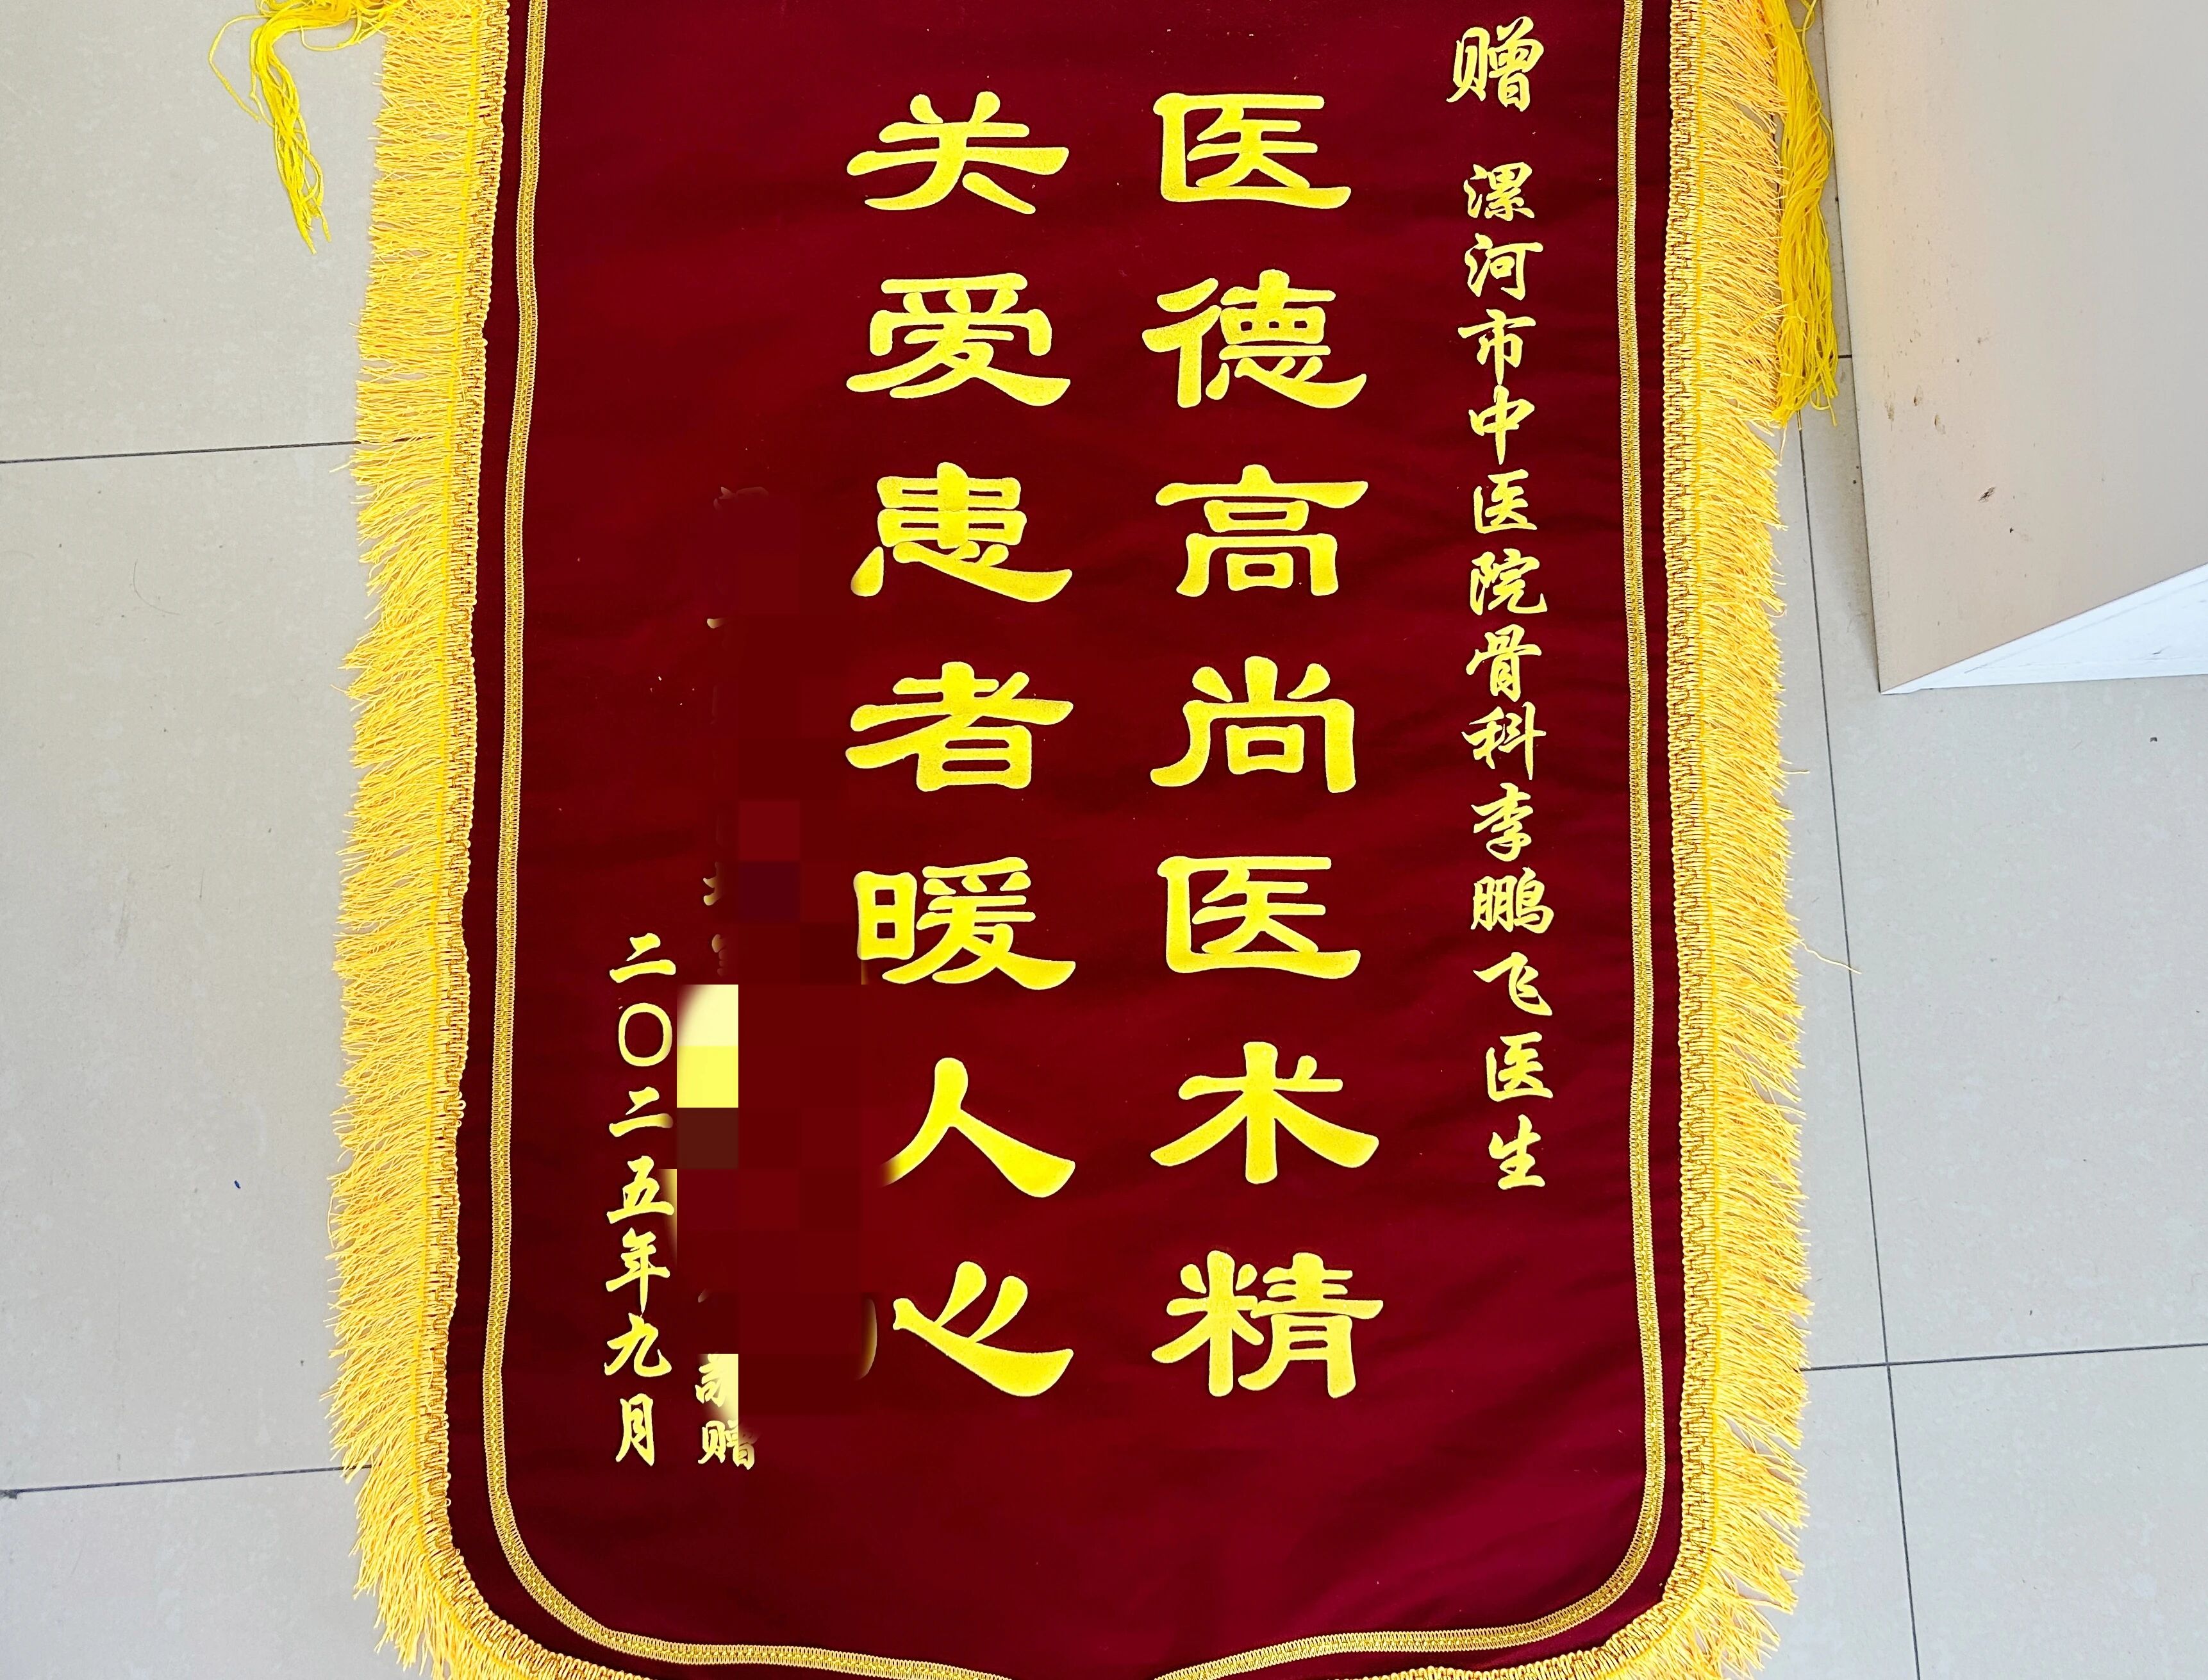 赠 漯河市中医院骨科李鹏飞医生
医德高尚医术精
关爱患者暖人心
赠
二〇二五年九月